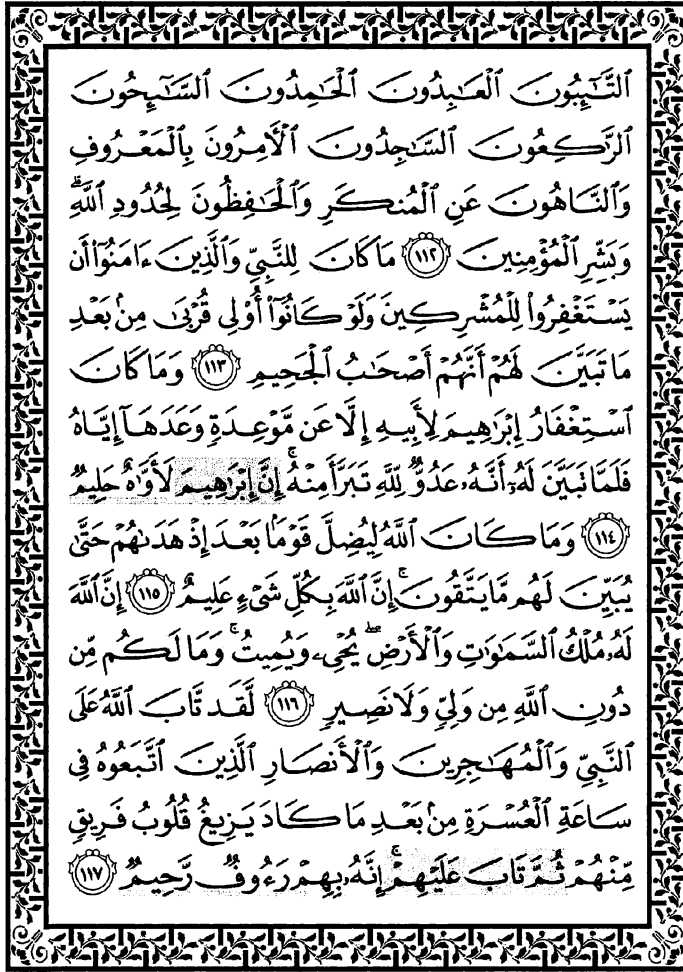 ٱلتَّٰٓئِبُونَ ٱلْعَٰبِدُونَ ٱلْحَٰمِدُونَ ٱلسَّٰٓئِحُونَ
ٱلرَّٰكِعُونَ ٱلسَّٰجِدُونَ ٱلْأَمِرُونَ بِٱلْمَعْرُوفِ
وَٱلنَّاهُونَ عَنِ ٱلْمُنكَرِ وَٱلْحَٰفِظُونَ لِحُدُودِ ٱللَّهِۗ
وَبَشِّرِ ٱلْمُؤْمِنِينَ ١١٢ مَا كَانَ لِلنَّبِيِّ وَٱلَّذِينَ ءَامَنُوٓا۟ أَن
يَسْتَغْفِرُوا۟ لِلْمُشْرِكِينَ وَلَوْ كَانُوٓا۟ أُو۟لِى قُرْبَىٰ مِنۢ بَعْدِ
مَا تَبَيَّنَ لَهُمْ أَنَّهُمْ أَصْحَٰبُ ٱلْجَحِيمِ ١١٣ وَمَا كَانَ
ٱسْتِغْفَارُ إِبْرَٰهِيمَ لِأَبِيهِ إِلَّا عَن مَّوْعِدَةٍ وَعَدَهَآ إِيَّاهُ
فَلَمَّا تَبَيَّنَ لَهُۥٓ أَنَّهُۥ عَدُوٌّ لِّلَّهِ تَبَرَّأَ مِنْهُۚ إِنَّ إِبْرَٰهِيمَ لَأَوَّٰهٌ حَلِيمٌ
١١٤ وَمَا كَانَ ٱللَّهُ لِيُضِلَّ قَوْمًۢا بَعْدَ إِذْ هَدَىٰهُمْ حَتَّىٰ
يُبَيِّنَ لَهُم مَّا يَتَّقُونَۚ إِنَّ ٱللَّهَ بِكُلِّ شَىْءٍ عَلِيمٌ ١١٥ إِنَّ ٱللَّهَ
لَهُۥ مُلْكُ ٱلسَّمَٰوَٰتِ وَٱلْأَرْضِۖ يُحْىِۦ وَيُمِيتُۚ وَمَا لَكُم مِّن
دُونِ ٱللَّهِ مِن وَلِىٍّ وَلَا نَصِيرٍ ١١٦ لَّقَد تَّابَ ٱللَّهُ عَلَى
ٱلنَّبِيِّ وَٱلْمُهَٰجِرِينَ وَٱلْأَنصَارِ ٱلَّذِينَ ٱتَّبَعُوهُ فِى
سَاعَةِ ٱلْعُسْرَةِ مِنۢ بَعْدِ مَا كَادَ يَزِيغُ قُلُوبُ فَرِيقٍ
مِّنْهُمْ ثُمَّ تَابَ عَلَيْهِمْۚ إِنَّهُۥ بِهِمْ رَءُوفٌ رَّحِيمٌ ١١٧